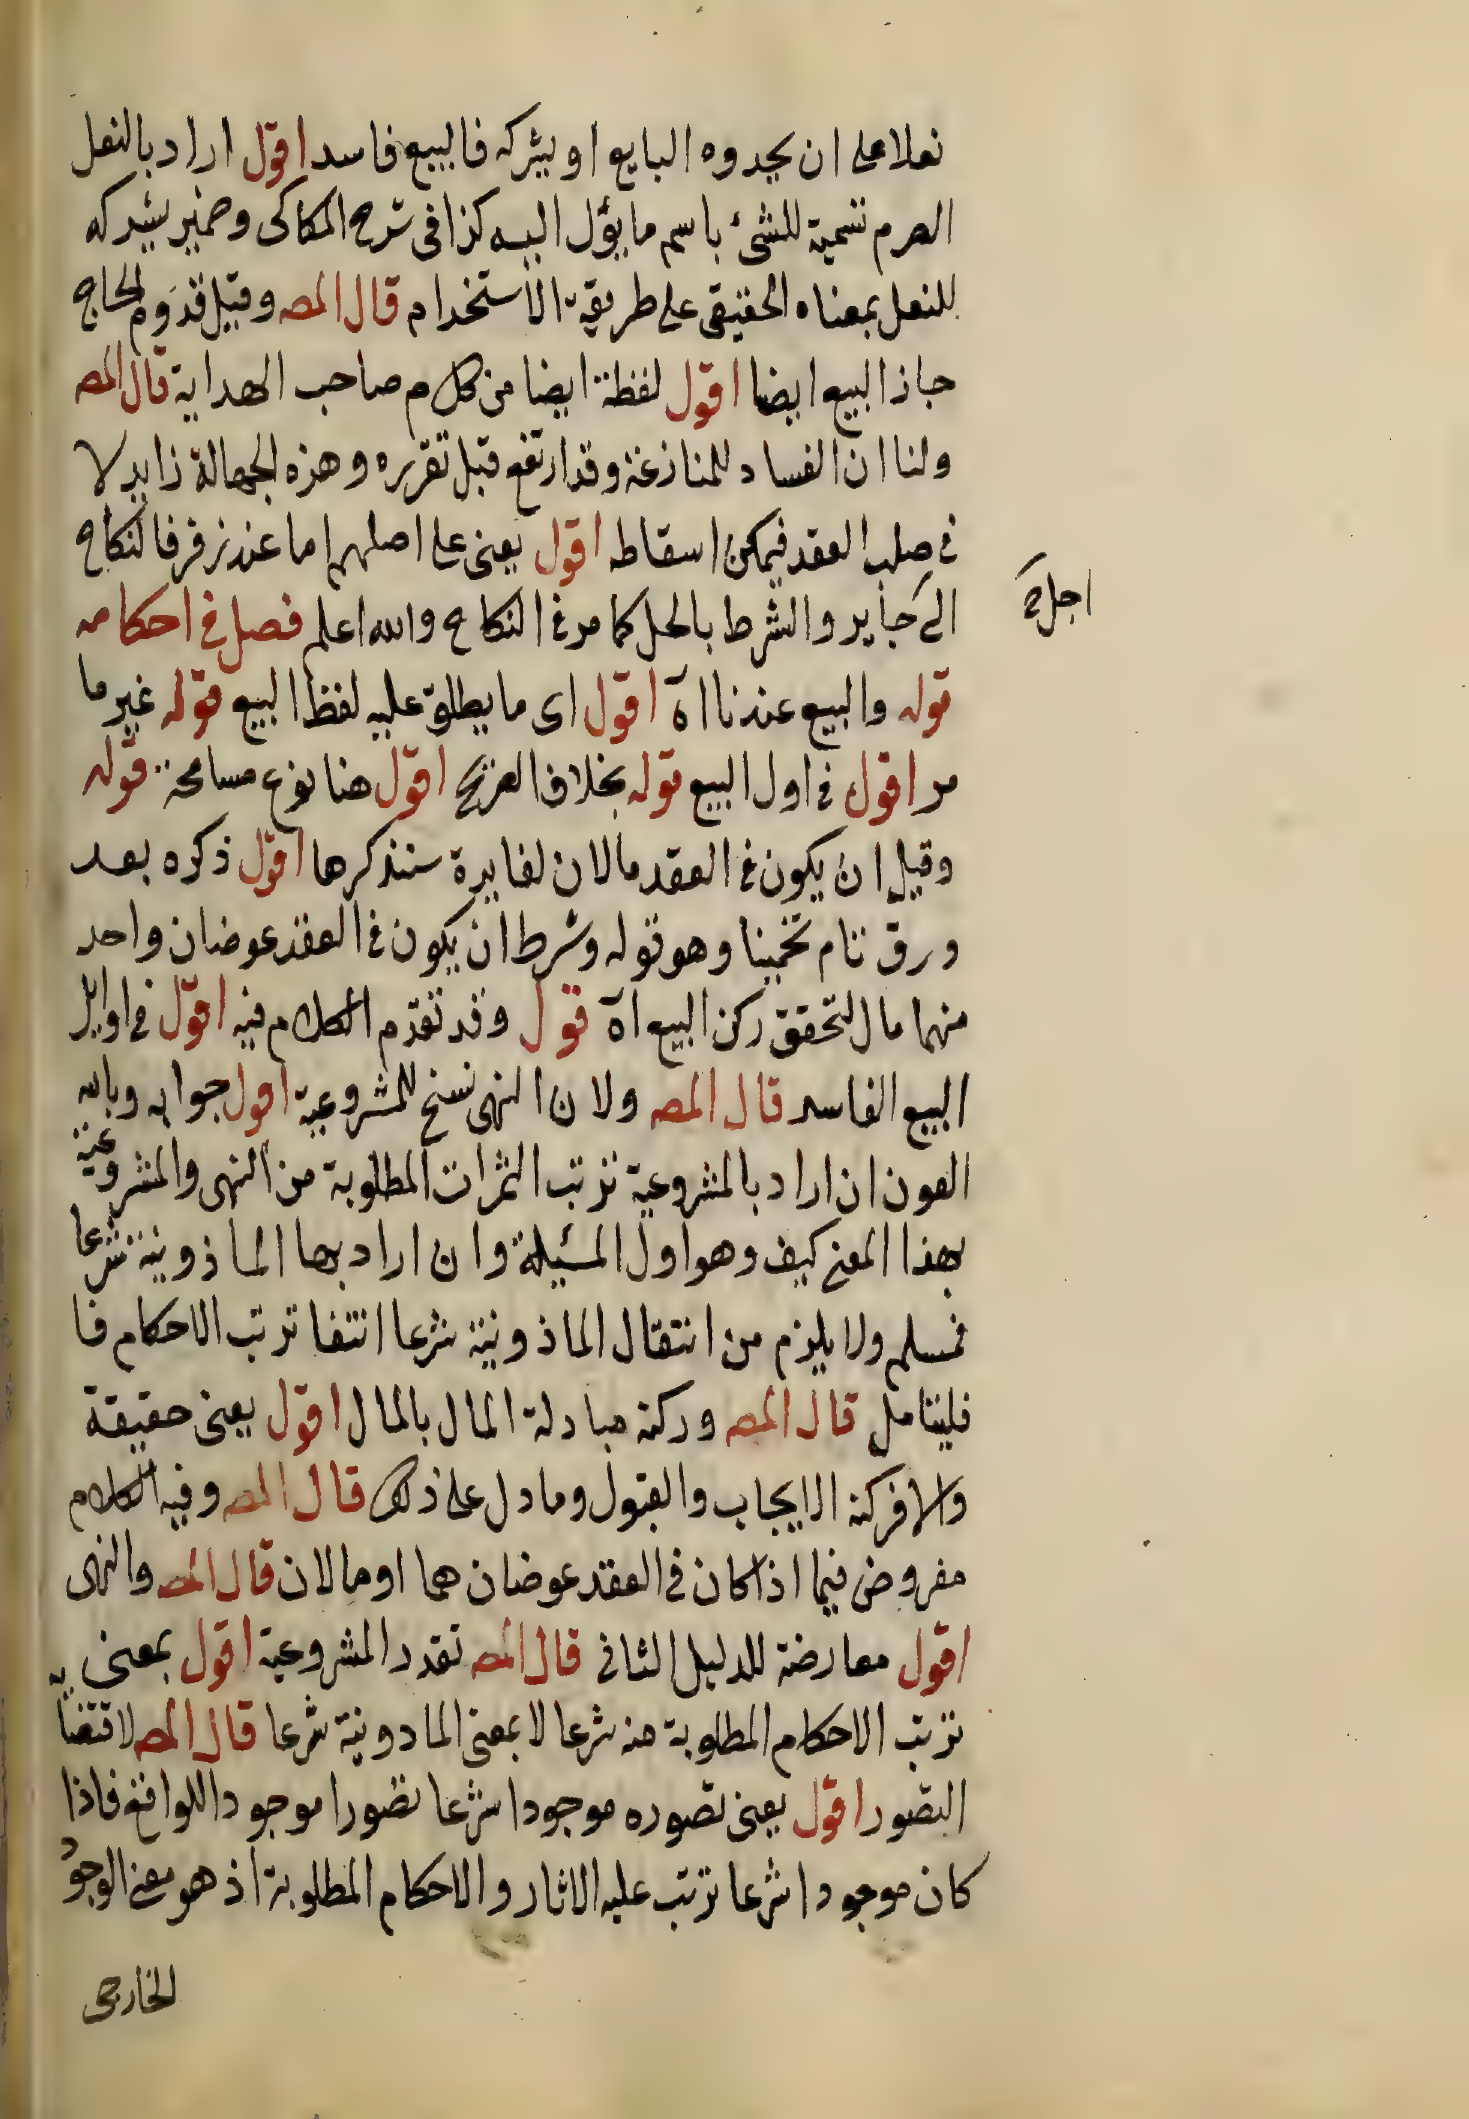 نعلا على ان يحدوه البايع او يشركه فالبيع فاسد اقول اراد بالنعل
الصرم تسمية للشئ باسم ما يؤل اليه كذا فى شرح الكاكى وضمير يشركه
للنعل بمعناه الحقيقى على طريقة الاستخدام قال المصـ وقيل قدوم الحاج
جاز البيع ايضا اقول لفظة ايضا من كلام صاحب الهداية قال المصـ
ولنا ان الفساد للمنازعة وقد ارتفع قبل تقرره وهذه الجهالة زايد لا
فى صلب العقد فيمكن اسقاطه اقول يعنى على اصلهم اما عند زفر فالنكاح
الى جاير والشرط بالحل كما مر فى النكاح والله اعلم فصل فى احكامه
اجل صح
قوله والبيع عندنا اه اقول اى ما يطلق عليه لفظ البيع قوله غير ما
مر اقول فى اول البيع قوله بخلاف الصريح اقول هنا نوع مسامحة قوله
وقيل ان يكون فى العقد مالان لفايدة سنذكرها اقول ذكره بعد
ورق تام تخمينا وهو قوله وشرط ان يكون فى العقد عوضان واحد
منهما مال لتحقق ركن البيع اه قول وقد تقدم الكلام فيه اقول فى اوايل
البيع الفاسد قال المصـ ولان النهى نسخ للمشروعية اقول جوابه وبالله
العون ان اراد بالمشروعية ترتب الثمرات المطلوبة من النهى والمشروعية
بهذا المعنى كيف وهو اول المسئيلة وان اراد بها الماذونية شرعا
فمسلم ولا يلزم من انتقال الماذونية شرعا انتفا ترتب الاحكام فا
فليتامل قال المصـ وركنه مبادلة المال بالمال اقول يعنى حقيقة
والا فركنه الايجاب والقبول وما دل على ذلك قال المصـ وفيه الكلام
مفروض فيما اذا كان فى العقد عوضان هما او مالان قال المصـ والنهى
اقول معارضة للدليل الثانى قال المصـ تقدر المشروعية اقول بمعنى
ترتب الاحكام المطلوبة منه شرعا لا بمعنى المادونية شرعا قال المصـ لاقتضائه
التصور اقول يعنى تصوره موجودا شرعا تصورا موجودا للواقع فاذا
كان موجودا شرعا ترتب عليه الاثار والاحكام المطلوبة اذ هو معنى الوجود
الخارجى